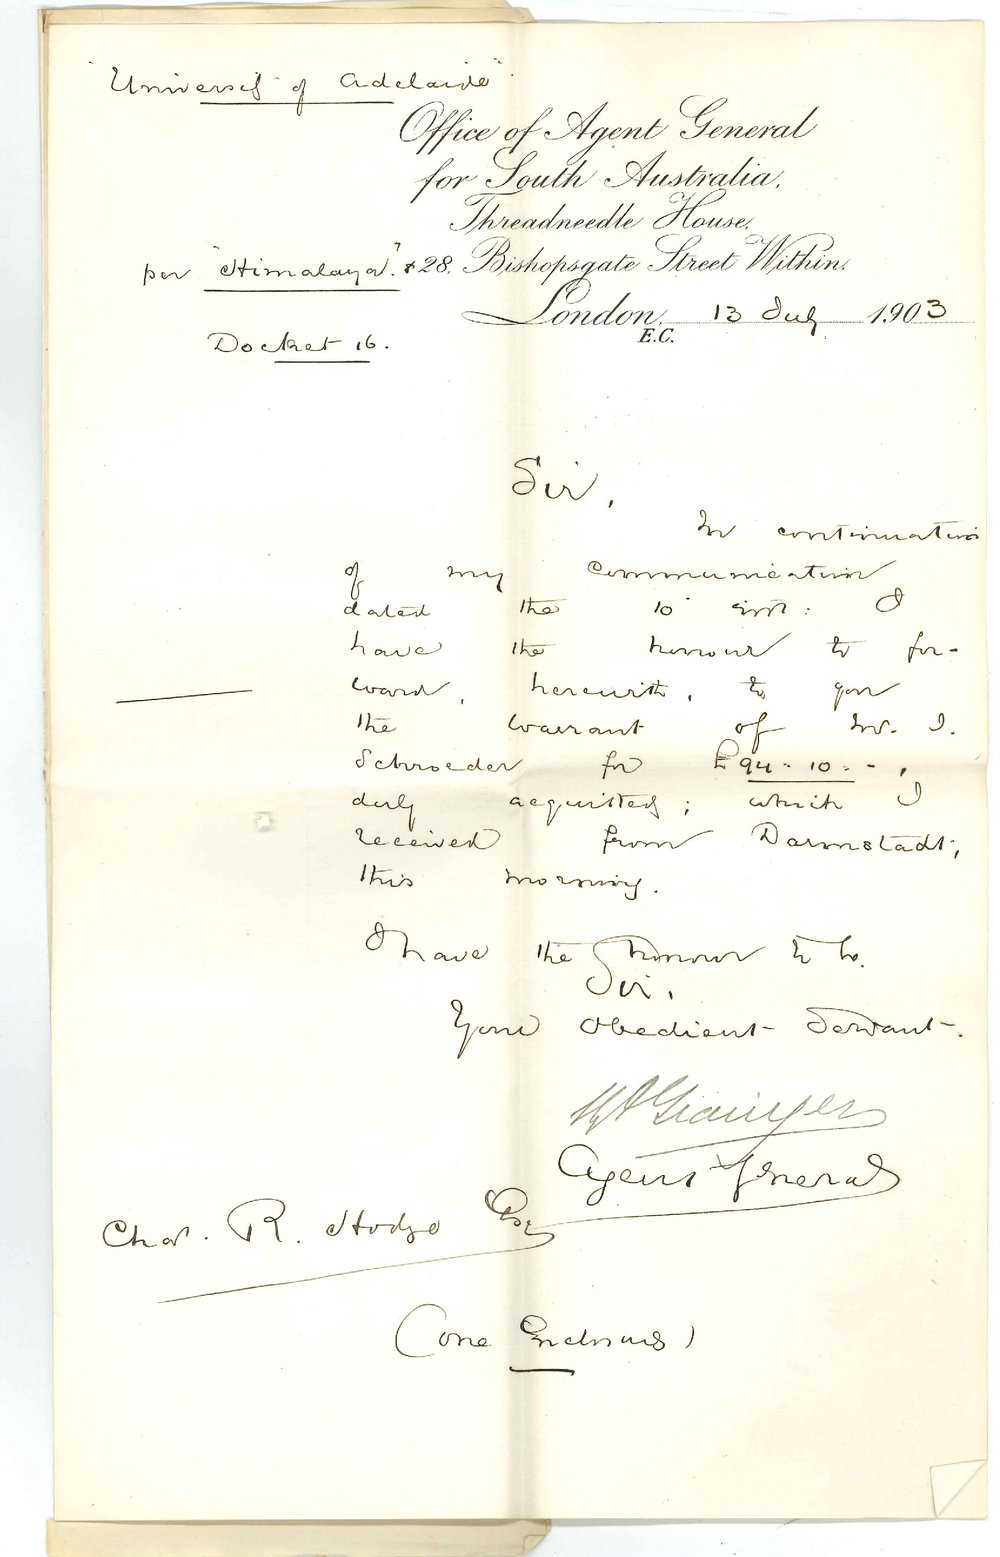 "University of Adelaide"
Office of Agent General
for South Australia,
Threadneedle House,
per "Himalaya". & 28, Bishopsgate Street Within.
London, 13 July 1903
E.C.
Docket 16.
Sir,
In continuation
of my communication
dated the 10 inst: I
have the honour to for-
ward, herewith, to you
the warrant of Mr. I.
Schroeder for £94-10-- ,
duly acquitted; which I
received from Darmstadt,
this morning.
I have the honour to be.
Sir,
Your obedient Servant.
Grainger
Agent General
Chas. R. Hodge Esq
(One Enclosure)